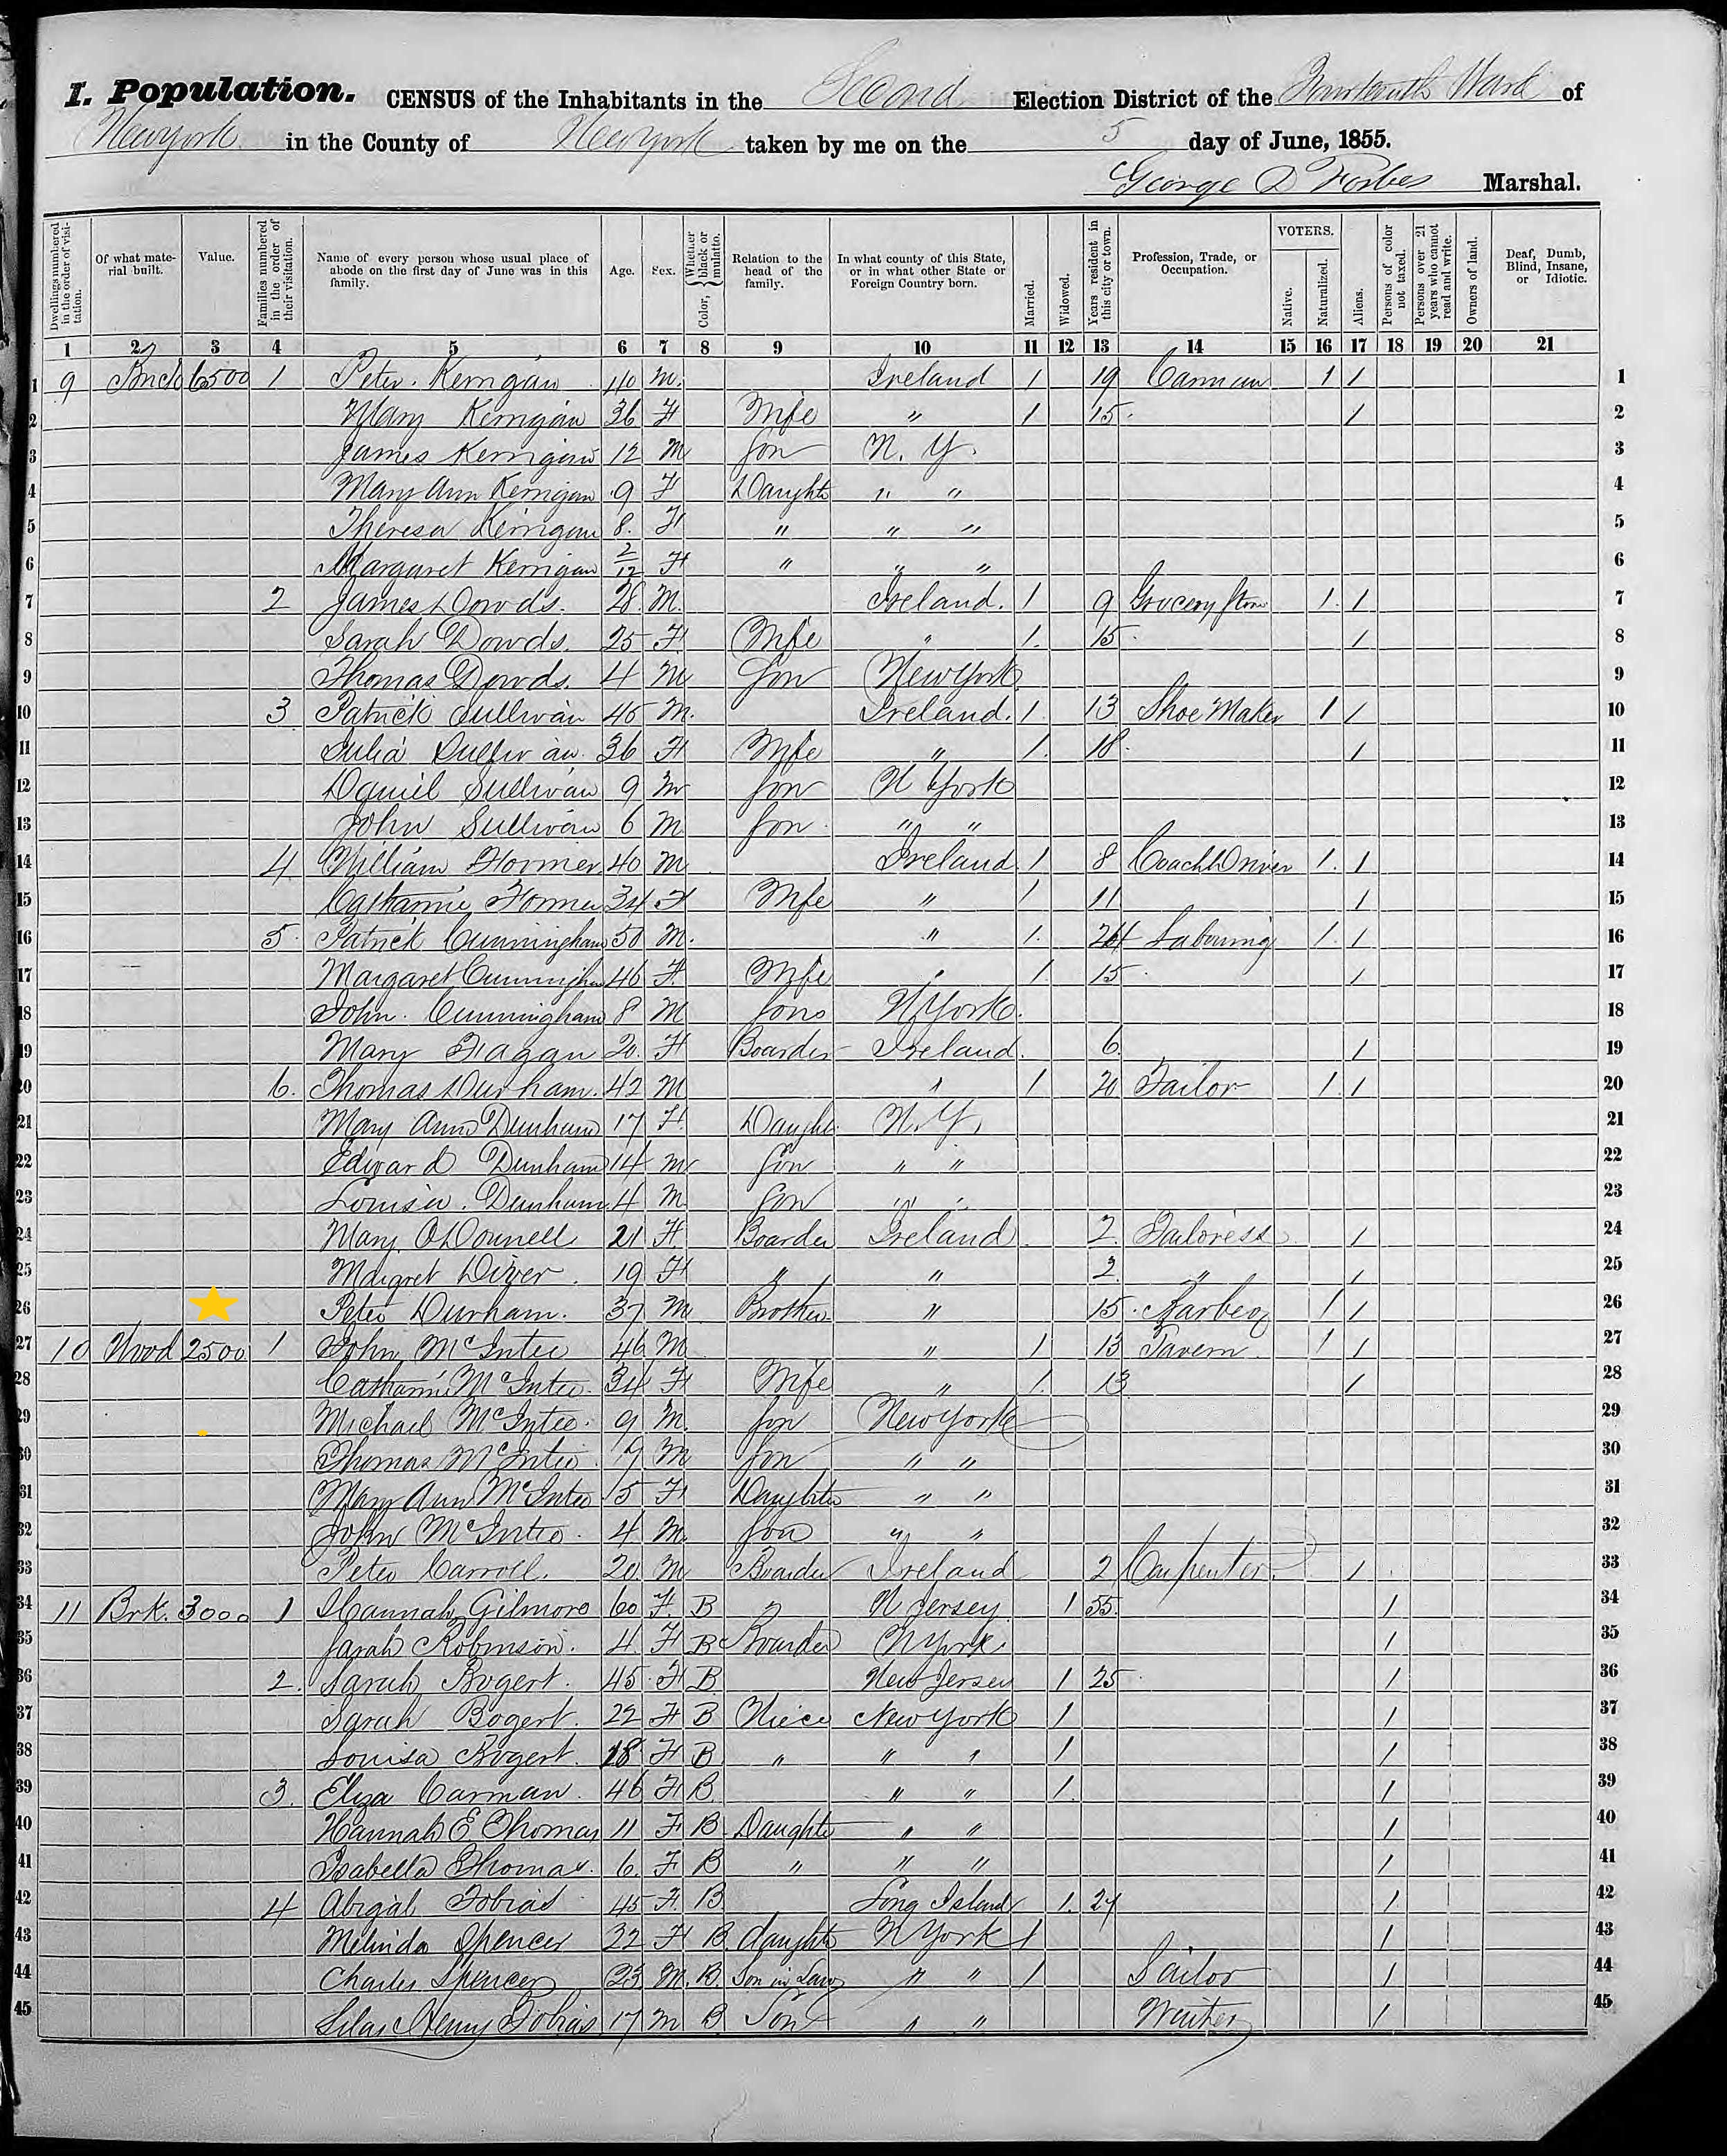 I. Population. CENSUS of the Inhabitants in the Second Election District of the Fourteenth Ward of
New york in the County of New York taken by me on the 5 day of June, 1855.
George D Forbes Marshal.
Dwellings numbered in the order of visitation. Of what material built. Value. Families numbered in the order of their visitation. Name of every person whose usual place of abode on the first day of June was in this family. Age. Sex. Color, Whether black or mulatto. Relation to the head of the family. In what county of this State, or in what other State or Foreign Country born. Married. Widowed. Years resident in this city or town. Profession, Trade, or Occupation. VOTERS. Native. Naturalized. Aliens. Persons of color not taxed. Persons over 21 years who cannot read and write. Owners of land. Deaf, Dumb, Blind, Insane, or Idiotic.
1 2 3 4 5 6 7 8 9 10 11 12 13 14 15 16 17 18 19 20 21
1 9 Brick 6500 1 Peter Kerrigan 40 M. Ireland 1 19 Carman 1 1 1
2 Mary Kerrigan 36 F Wife " 1 15 1 2
3 James Kerrigan 12 M Son N. Y. 3
4 Mary Ann Kerrigan 9 F Daughte " " 4
5 Theresa Kerrigan 8 F " " " 5
6 Margaret Kerrigan 2/12 F " " " 6
7 2 James Dowds. 28 M. Ireland. 1 9 Grocery Store 1 1 7
8 Sarah Dowds. 25 F Wife " 1 15 1 8
9 Thomas Dowds. 4 M Son New York 9
10 3 Patrick Sullivan 45 M. Ireland. 1 13 Shoe Maker 1 1 10
11 Julia Sullivan 36 F Wife " 1 18 1 11
12 Daniel Sullivan 9 M Son N York 12
13 John Sullivan 6 M Son " " 13
14 4 William 40 M Ireland 1 8 Coach Driver 1 1 14
15 Catharine 34 F Wife " 1 11 1 15
16 5 Patrick Cunningham 50 M. " 1 Labouring 1 1 16
17 Margaret Cunningham 46 F Wife " 1 15 1 17
18 John Cunningham 8 M Sons N York. 18
19 Mary Fagan 20 F Boarder Ireland. 6 1 19
20 6. Thomas Durham. 42 M " 1 20 Tailor 1 1 20
21 Mary Ann Dunham 17 F Daught N. Y. 21
22 Edward Dunham 14 M Son " " 22
23 Louisa. Dunham 4 M Son " " 23
24 Mary O Donnell 21 F Boarder Ireland 2 Tailoress 1 24
25 Margret 19 F " " 2 " 1 25
26 Peter Durham. 37 M Brother " 15 1 1 26
27 10 Wood 2500 1 John McIntee 46 M " 1 13 Tavern 1 1 27
28 Catharine McIntee 34 F Wife " 1 13 1 28
29 Michael McIntee 9 M. Son New York 29
30 Thomas McIntee 7 M Son " " 30
31 Mary Ann McIntee 5 F Daughter " " 31
32 John McIntee 4 M. Son " " 32
33 Peter Carroll. 20 M Boarder Ireland 2 Carpenter 1 33
34 11 Brk. 3000 1 Hannah Gilmore 60 F. B " N Jersey 1 55 1 34
35 Sarah Robinson. 4 F B Boarder N York 1 35
36 2. Sarah Bogert. 45 F B New Jersey 1 25 1 36
37 Sarah Bogert. 22 F B Niece New York 1 1 37
38 Louisa Bogert. 18 F B " " " 1 1 38
39 3. Eliza Carman 46 F B " " 1 1 39
40 Hannah E Thomas 11 F B Daughte " " 1 40
41 Isabella Thomas. 6 F B " " " 1 41
42 4 Abigal Tobias 45 F. B Long Island 1 1 42
43 Melinda Spencer 22 F B. daughte N York 1 1 43
44 Charles Spencer 23 M. B. Son in Law " " 1 Sailor 1 44
45 Silas Henry Tobias 17 M B Son " " Waiter 1 45